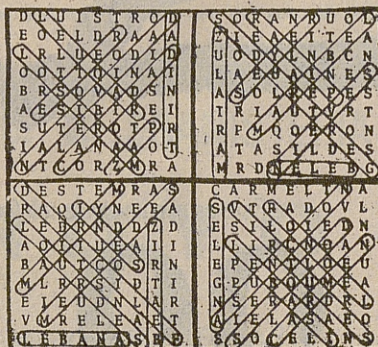 D L D I S T R O D
E O E L D R A A A
L L L U E O D D D
O O T I O I N A I
B R S O V A D S N
A S I B I R E I I
S U T E R D T P R
I A L A N A A O T
N T C O R Z M R A
S O R A N R U O L
Z I E A E I T E A
U O D Y L N B C N
L A E B A I N E S
A S O L R E P E S
T R I A T T V R T
R P M Q O E R O N
A T A S I L D E S
M R D N E L E B G
D E S T E M R A S
R A O I Y N E E A
L E B R N D D Z D
A O I I U E A I I
B A U T C O S R N
M L R R S I D T I
E I E U D N L A R
V M R E L E A E T
L E B A N A S R E
C A R M E L I N A
S V T R A D O V L
E E S L O I E D N
L L I R C N O A N
E P E N T L O E U
G P U R Q U M E A
N S E R A R D R L
A V E L A S A E O
S S O C E L I N S